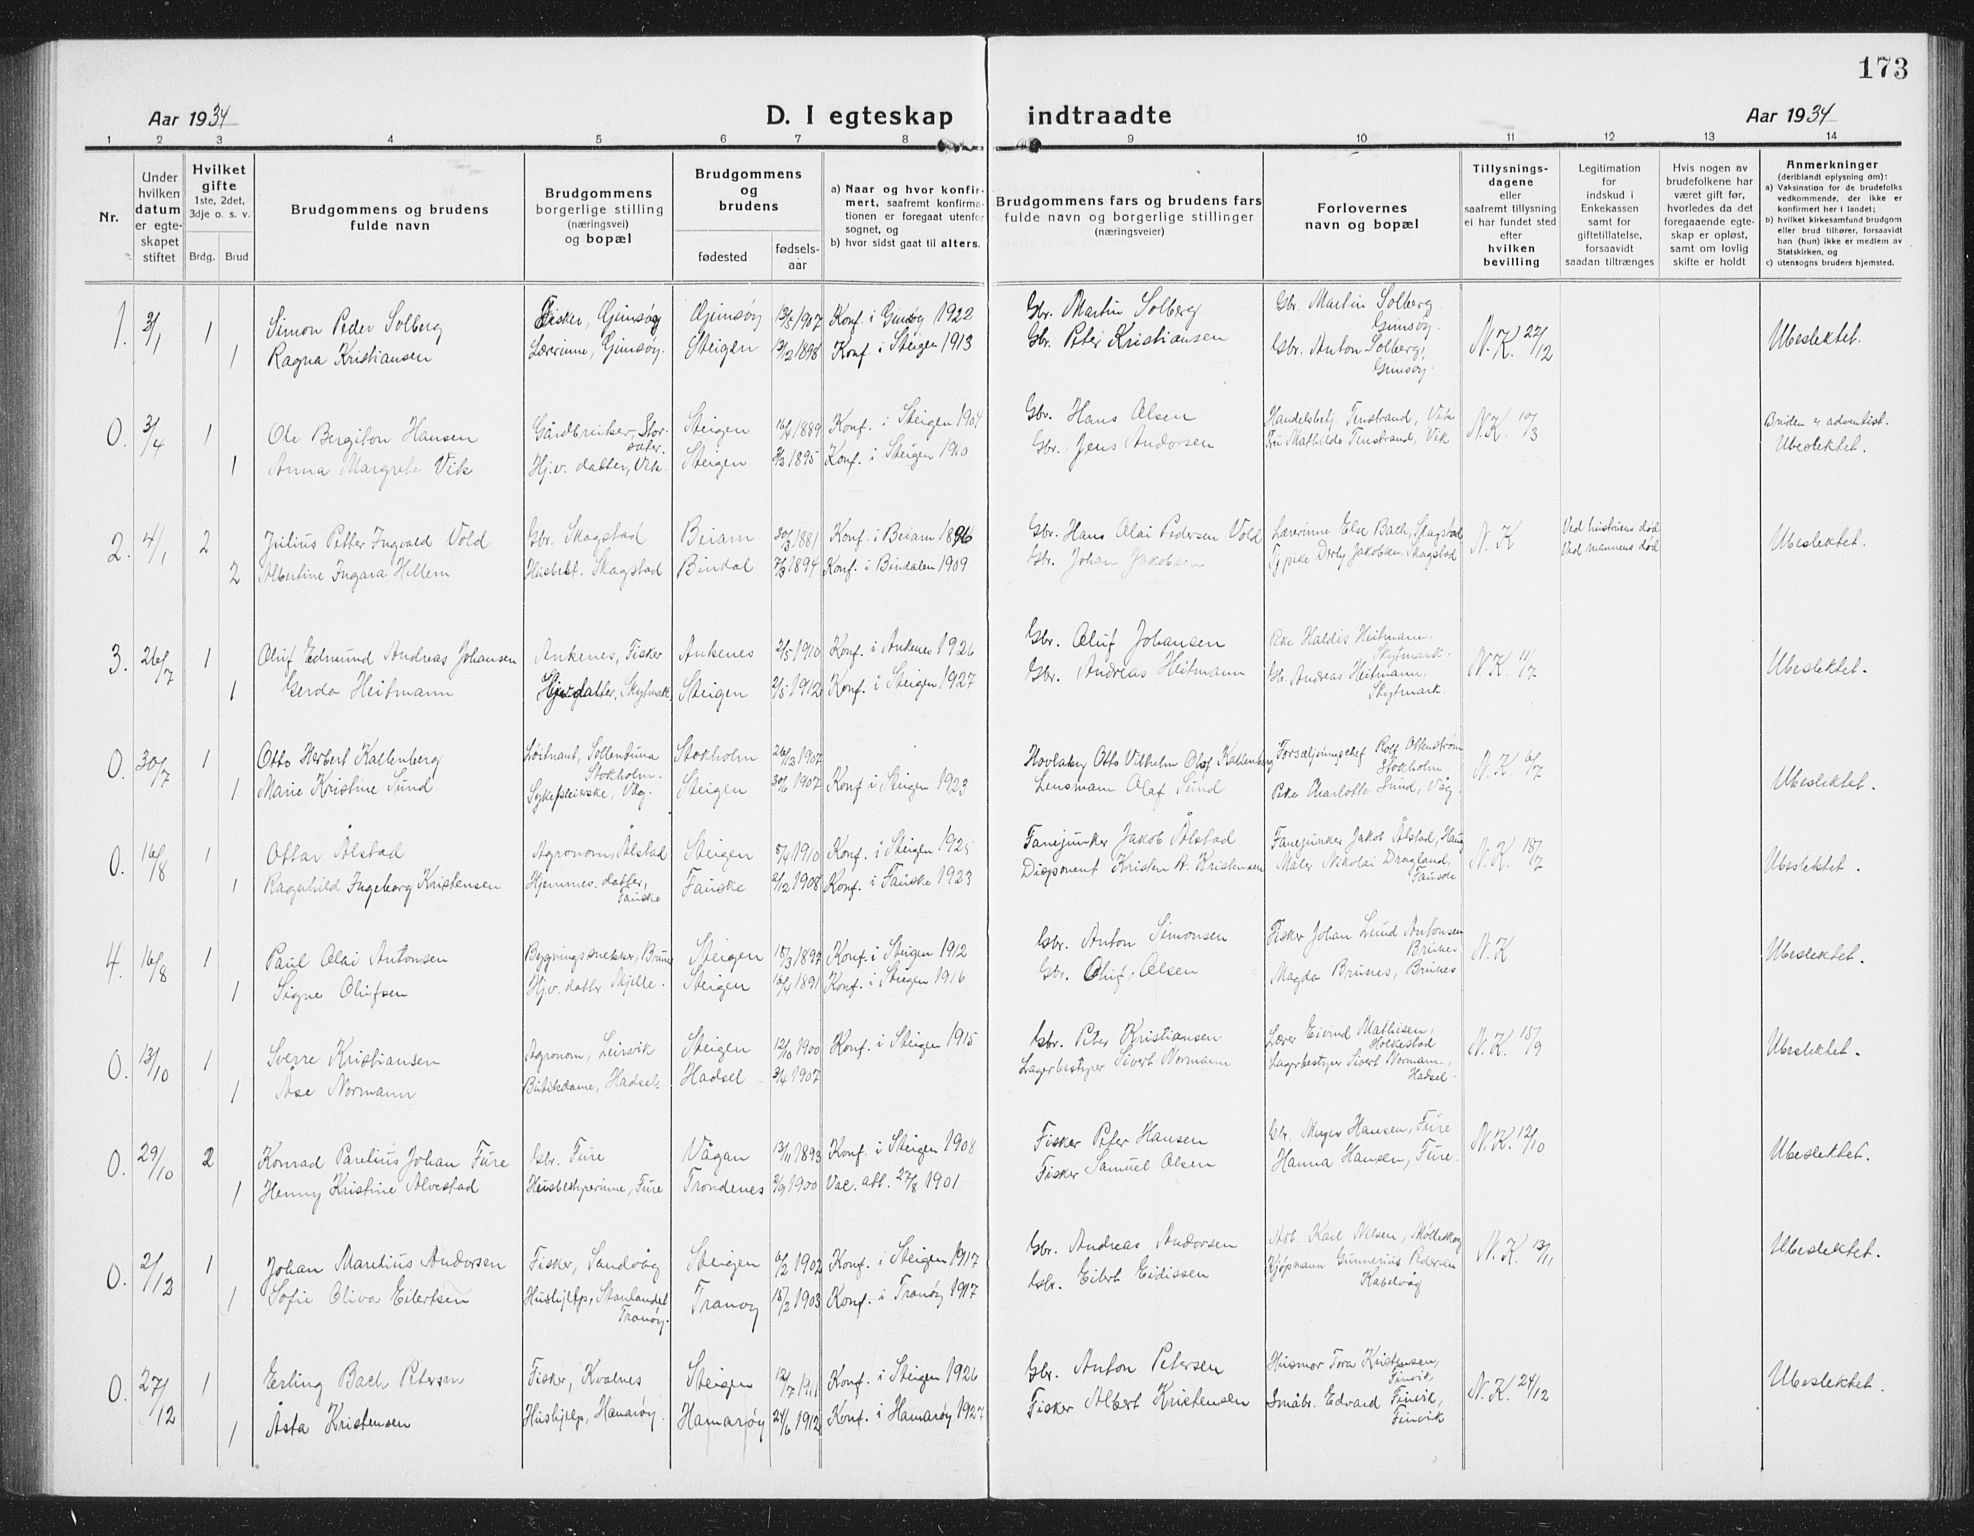 173
Aar 1934 D. I egteskap indtraadte Aar 1934
1 2 3 4 5 6 7 8 9 10 11 12 13 14
Nr.
Under hvilken datum er egte-skapet stiftet
Hvilket gifte 1ste, 2det, 3dje o. s. v.
Brdg. Brud
Brudgommens og brudens fulde navn
Brudgommens borgerlige stilling (næringsvei) og bopæl
Brudgommens og brudens
fødested fødsels-aar
a) Naar og hvor konfir-mert, saafremt konfirma-tionen er foregaat utenfor sognet, og
b) hvor sidst gaat til alters.
Brudgommens fars og brudens fars fulde navn og borgerlige stillinger (næringsveier)
Forlovernes navn og bopæl
Tillysnings-dagene eller saafremt tillysning ei har fundet sted efter hvilken bevilling
Legitimation for indskud i Enkekassen samt for giftetillatelse, forsaavidt saadan tiltrænges
Hvis nogen av brudefolkene har været gift før, hvorledes da det foregaaende egte-skap er opløst, samt om lovlig skifte er holdt
Anmerkninger (deriblandt oplysning om):
a) Vaksination for de brudefolks vedkommende, der ikke er konfirmert her i landet;
b) hvilket kirkesamfund brudgom eller brud tilhører, forsaavidt han (hun) ikke er medlem av Statskirken, og
c) utensogns bruders hjemsted.
1. 3/1 1 Simon Peder Solberg Fisker, Gimsøy Gimsøy 1907 Konf. i Gimsøy 1922 Gbr. Martin Solberg Gbr. Martin Solberg, Gimsøy. N.K. 22/12 Ubeslektet.
1 Ragna Kristiansen Lærerinne, Gimsøy. Steigen 1898 Konf. i Steigen 1913 Gbr. Peter Kristiansen Gbr. Anton Solberg, Gimsøy.
0. 3/4 1 Ole Bergiton Hansen Gårdbruker, Steigen 1889 Konf. i Steigen 1904 Gbr. Hans Olsen Handelsbetj. Tenstrand, Vik N.K. 10/3 Bruden er adventist.
1 Anna Margrete Vik Hj.v. datter, Vik. Steigen 1895 Konf. i Steigen 1910 Gbr. Jens Andorsen Fru Mathilde Tenstrand, Vik Ubeslektet.
2. 4/1 2 Julius Petter Ingvald Vold Gbr. Skagstad Beiarn 30/3 1881 Konf. i Beiarn 1896 Gbr. Hans Olai Pedersen Vold Lærerinne Else Bach, Skagstad N.K Ved hustruens død Ubeslektet.
2 Albertine Ingara Hellem Husbest. Skagstad Bindal 1894 Konf. i Bindalen 1909 Gbr. Johan Jakobsen Jakobsen, Skagstad Ved mannens død
3. 26/7 1 Oluf Edmund Andreas Johansen Ankenes, Fisker Ankenes 2/5 1910 Konf. i Ankenes 1926 Gbr. Oluf Johansen Pike Haldis Heitmann, Skytmark. N.K. 11/7 Ubeslektet.
1 Gerda Heitmann Hjv. datter, Skytmark Steigen 2/5 1912 Konf. i Steigen 1927 Gbr. Andreas Heitmann Gb. Andreas Heitmann, Skytmark.
0. 30/7 1 Otto Herbert Kallenberg Løitnant, Sollentuna Stokholm. Stokholm 1907 Otto Vilhelm Olof Kallenberg Forsaljningschef Rolf Ottenstrøm Stokholm. N.K. 6/7 Ubeslektet.
1 Marie Kristine Sund Sykepleierske, Våg. Steigen 30/6 1907 Konf i Steigen 1923 Lensmann Olaf Sund Pike Charlotte Sund, Våg.
0. 16/8 1 Ottar Ålstad Agronom, Ålstad Steigen 1910 Konf. i Steigen 1925 Fanejunker Jakob Ålstad Fanejunker Jakob Ålstad, Haug N.K. 18/7 Ubeslektet.
1 Ragnhild Ingeborg Kristensen Hjemmev. datter, Fauske Fauske 2/12 1908 Konf. i Fauske 1923 Disponent Kristen A. Kristensen Maler Nikolai Dragland, Fauske
4. 16/8 1 Paul Olai Antonsen Bygningssnekker, Brunes Steigen 18/3 1897 Konf. i Steigen 1912 Gbr. Anton Simonsen Fisker Johan Lund Antonsen Brunes N.K Ubeslektet.
1 Signe Olufsen Hjv. datter Mjelle. Steigen 16/4 1891 Konf. i Steigen 1916 Gbr. Oluf Olsen Magda Brunes, Brunes
0. 13/10 1 Sverre Kristiansen Agronom, Leirvik Steigen 12/10 1900 Konf. i Steigen 1915 Gbr. Peter Kristiansen Lærer Eivind Mathisen, Holkestad N.K. 15/9 Ubeslektet.
1 Åse Normann Butikdame, Hadsel. Hadsel 3/4 1907 Lagerbestyrer Sivert Normann Lagerbestyrer Sivert Normann, Hadsel.
0. 29/10 2 Konrad Parelius Johan Fure Gbr. Fure Vågan 13/11 1893 Konf. i Steigen 1908 Fisker Peter Hansen Gbr. Meyer Hansen, Fure N.K. 12/10 Ubeslektet.
1 Henny Kristine Alvestad Husbestyrerinne, Fure Trondenes 1900 Vac. att. 27/8 1901 Fisker Samuel Olsen Hanna Hansen, Fure.
0. 2/12 1 Johan Marelius Andorsen Fisker, Sandvåg Steigen 6/2 1902 Konf. i Steigen 1917 Gbr. Andreas Andorsen Arb. Karl Nilsen, N.K. 13/11 Ubeslektet.
1 Sofie Oliva Eilertsen Hushjelp, Stanlandet Tranøy. Tranøy 18/2 1903 Konf. i Tranøy 1917 Gbr. Eilert Eidissen Kjøpmann Gunnerius Pedersen Kabelvåg
0. 27/12 1 Erling Bach Petersen Fisker, Kvalnes Steigen 12/7 1911 Konf. i Steigen 1926 Gbr. Anton Petersen Husmor Tora Kristensen, Finvik N.K. 24/12 Ubeslektet.
1 Åsta Kristensen Hushjelp, Hamarøy. Hamarøy 24/6 1912 Konf. i Hamarøy 1927 Fisker Albert Kristensen Småbr. Edvard Finvik, Finvik